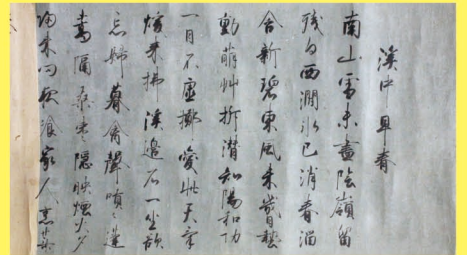 溪中早春
南山雪未盡陰嶺留
殘白西澗冰已消春溜
含新碧東風来幾日蟄
動萌艸坼潛知陽和功
一日不虛擲愛此天氣
暖来拂溪邊石一坐欲
忘歸暮禽聲嘖々蓬
蒿隔桑棗隱映煙火夕
歸来問夜飡家人烹